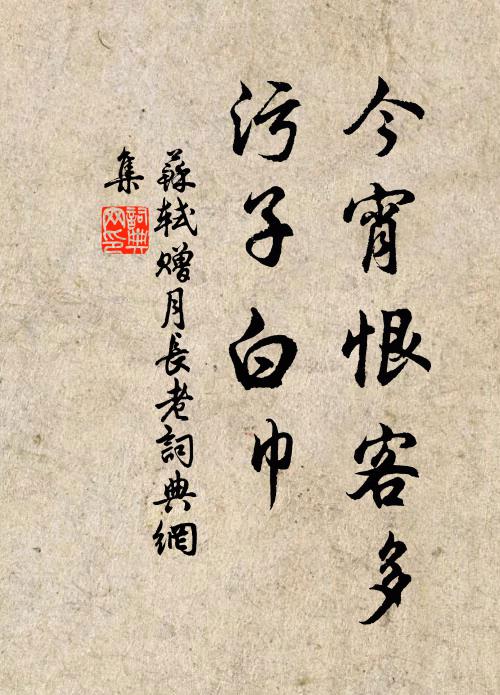 今宵恨客多
污子白巾
蘇軾贈月長老詞典網
集
詞典
网印